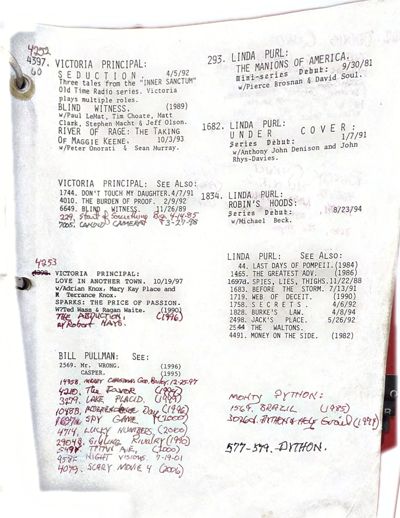 4252
4397.
60
VICTORIA PRINCIPAL:
SEDUCTION. 4/5/92
Three tales from the "INNER SANCTUM"
Old Time Radio series. Victoria
plays multiple roles.
BLIND WITNESS. (1989)
w/Paul LeMat, Tim Choate, Matt
Clark, Stephen Macht & Jeff Olson.
RIVER OF RAGE: THE TAKING
OF MAGGIE KEENE. 10/3/93
w/Peter Onorati & Sean Murray.
VICTORIA PRINCIPAL: SEE ALSO:
1744. DON'T TOUCH MY DAUGHTER. 4/7/91
4010. THE BURDEN OF PROOF. 2/9/92
6649. BLIND WITNESS. 11/26/89
229. Start of Something Big 4-14-85
7005. CANDID CAMERA
4253
VICTORIA PRINCIPAL:
LOVE IN ANOTHER TOWN. 10/19/97
w/Adrian Knox. Mary Kay Place and
Terrance Knox.
SPARKS: THE PRICE OF PASSION.
W/Ted Wass & Ragan Waite. (1990)
THE ABDUCTION. (1996)
w/Robert HAYS.
BILL PULLMAN: SEE:
2569. MR. WRONG. (1996)
CASPER. (1995)
12-25-97
THE FAVOR (1994)
3829. LAKE PLACID. (1999)
INDEPENDENCE DAY (1996)
SPY GAME
4714. LUCKY NUMBERS (2000)
SIBLING RIVALRY (1990)
TITAN A.E. (2000)
NIGHT VISIONS. 7-19-01
4079. SCARY MOVIE 4 (2006)
293. LINDA PURL:
THE MANIONS OF AMERICA.
Mini-series Debut: 9/30/81
w/Pierce Brosnan & David Soul.
1682. LINDA PURL:
UNDER COVER:
Series Debut: 1/7/91
w/Anthony John Denison and John
Rhys-Davies.
1834. LINDA PURL:
ROBIN'S HOODS:
Series Debut: 8/23/94
w/Michael Beck.
LINDA PURL: SEE ALSO:
44. LAST DAYS OF POMPEII. (1984)
1465. THE GREATEST ADV. (1986)
1697d. SPIES, LIES, THIGHS. 11/22/88
1683. BEFORE THE STORM. 7/13/91
1719. WEB OF DECEIT. (1990)
1758. SECRETS. 4/6/92
1828. BURKE'S LAW. 4/8/94
2498. JACK'S PLACE. 5/26/92
2544 THE WALTONS.
4491. MONEY ON THE SIDE. (1982)
MONTY PYTHON:
1569. BRAZIL (1985)
577-579. PYTHON.